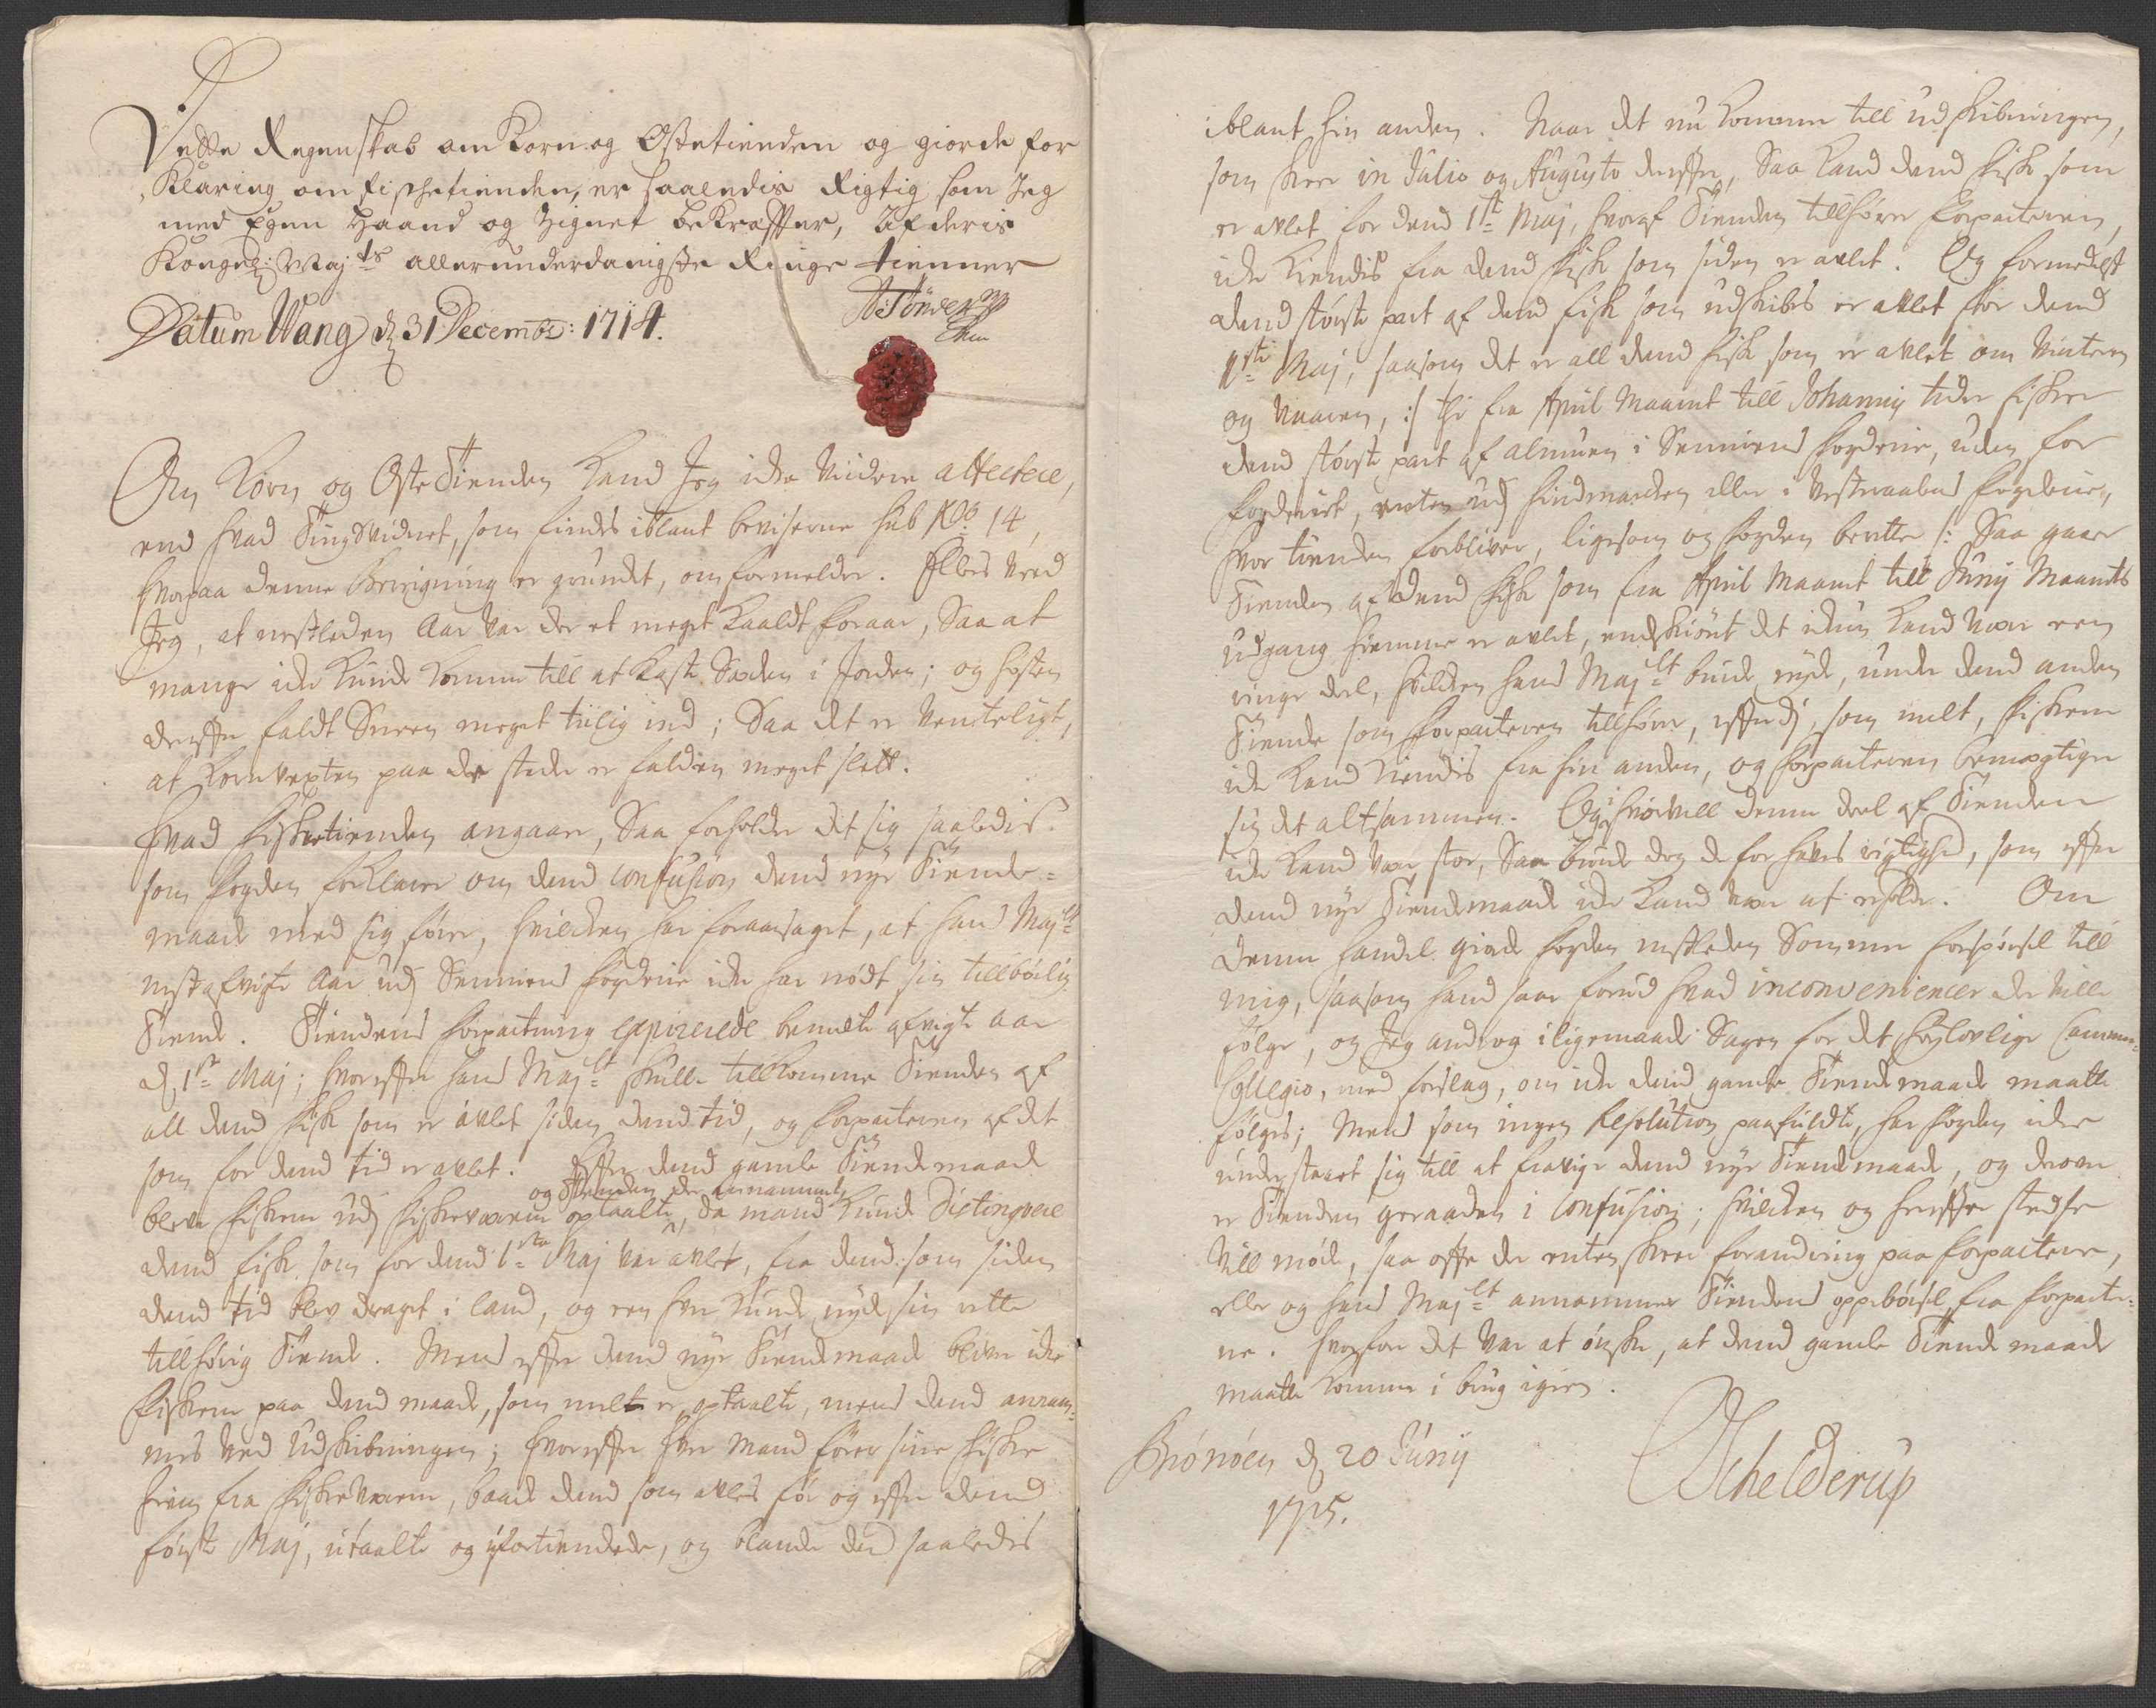 Dette Regenskab om Korn og Ostetienden og giorde for
Klaring om fischetienden, er saaledis Rigtig som Jeg
med Egen Haand og Zignet bekræffter, Af deris
Kongel: Maj:ts allerunderdanigste Ringe tienner
Datum Wang d 31 Decembr: 1714.
Om Korn og OsteTienden kand Jeg icke viidere attestere,
end hvad Tingsvidnet, som findes iblant beviserne sub No 14,
hvorpaa denne Beregning er grundet, om formelder. Elles veed
Jeg, at nestleden Aar var der et meget kaaldt foraar, Saa at
mange icke kunde komme till at kaste Sæden i Jorden; og høsten
derefter faldt Sneen meget tiilig ind; Saa det er venteligt,
at kornvexten paa de steder er falden meget slett.
Hvad fisketienden angaar, Saa forholder det sig saaledis
som fogden forklarer om dend confusion dend nye Tiende-
maade med sig fører, hvilcken har foraarsaget, at hans Maj:ts
nest afvigte Aar udj Senniens fogderie icke har nødt sin tillbørlig
Tiende. Tiendens forpactning expirerede bemelte afvigte aar
d 1ste Maj; hvorefter hans Maj:t skulle tillkomme Tienden af
all dend fisk som er avlet siden dend tid, og forpacteren af det
som for dend tid er avlet. Efter dend gamle Tiendemaade
og Tienden der annammet
bleve fiskene udj fiskeværene optaalte, da mand kunde distingvere
dend fisk som for dend 1ste Maj var avlet, fra dend som siden
dend tid blev draget i land, og een hver kunde nyde sin rette
tillhørig Tiende. Mens efter dend nye Tiendemaade bliver icke
fiskene paa dend maade, som melt er, optaalte, mens dend annam-
mes ved Udskibningen; hvorefter hver mand fører sine fiske
hiem fra fiskeværene, baade dend som avles før og efter dend
første Maj, utaalte og ufortiendede, og blande dem saaledis
iblant hin anden. Naar det nu kommer till udskibningen,
som skeer in Julio og Augusto derefter, Saa kand dend fisk som
er avlet for dend 1ste Maj, hvoraf Tienden tillhører forpacteren,
icke kiendis fra dend fisk som siden er avlet. Og formedelst
dend største part af dend fisk som udskibes er avlet for dend
1ste Maj, saasom det er all dend fisk som er avlet om Vinteren
og Vaaren, :/ thi fra April Maanet till Johannis tider fisker
dend største part af almuen i Senniens fogderie, uden for
fogderiet, enten udj Findmarcken eller i Vesteraalens fogderie,
hvor tienden forbliver, ligesom og fogden beretter /: Saa gaar
Tienden af dend fisk som fra April Maanet till Junij Maanets
Udgang hiemme er avlet, endskiønt det icke kand være een
ringe deel, hvilcken hans Maj:t burde nyde, under dend anden
Tiende som forpacteren tillhører, efterdj, som melt, fiskene
icke kand kiendis fra hin anden, og forpacteren bemægtiger
sig det altsammen. Og i hvorvell denne deel af Tienden
icke kand være stor, Saa burde dog de for haves rigtighed, som efter
dend nye Tiendemaade icke kand være at erholde. Om
denne handel giorde fogden nestleden Sommer forspørsel till
mig, saasom hand saae forud hvad inconveniencer der ville
følge, og Jeg androg iligemaade Sagen for det høylovlige Cammer-
Collegio, med forslag, om icke dend gamle Tiendemaade maatte
følges; Mens som ingen Resolution paafuldte, har fogden icke
understaaet sig till at fravige dend nye Tiendemaade, og derover
er Tienden geraaden i confusion; hvilcken og herefter stedse
vill møde, saa ofte der enten skeer forandring paa forpactere,
eller og hans Maj:t annammer Tiendens oppebørsel fra forpacter-
ne. Hvorfor det var at ønske, at dend gamle Tiende maade
maatte komme i brug igien.
Brönöen d 20 Junij
1715.
Schelderup